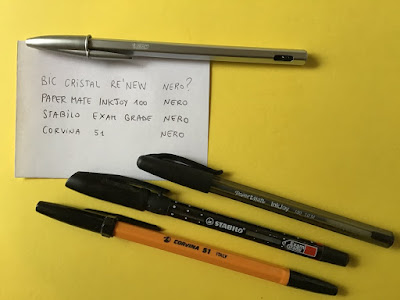 BIC
BIC CRISTAL RE'NEW NERO?
PAPER MATE INKJOY 100 NERO
STABILO EXAM GRADE NERO
CORVINA 51 NERO
PaperMate InkJoy
STABILO
CORVINA 51 ITALY